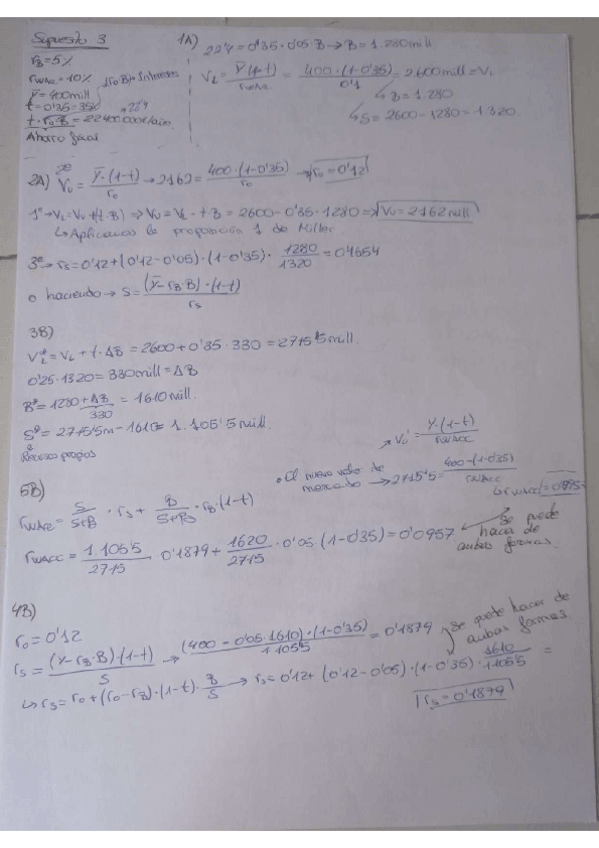 Supuesto 3
rB = 5%
rWACC = 10%
Y = 400 mill
t = 0'35 = 35%
t · rB · B = 22400.000€/año
Ahorro fiscal
(rB · B) = Intereses
22'4
1A)
22'4 = 0'35 · 0'05 · B → B = 1.280 mill
VL = Y(1-t) / rWACC = 400 · (1-0'35) / 0'1 = 2600 mill = VL
↳ B = 1.280
↳ S = 2600 - 1280 = 1320
2A) 2º VU = Y · (1-t) / r0 → 2162 = 400 · (1-0'35) / r0 → r0 = 0'12
1º → VL = VU + (t · B) ⇒ VU = VL - t · B = 2600 - 0'35 · 1280 = VU = 2162 mill
↳ Aplicamos la proposición 1 de Miller
3º → rS = 0'12 + (0'12 - 0'05) · (1-0'35) · 1280 / 1320 = 0'1654
o haciendo → S = (Y - rB · B) · (1-t) / rS
3B)
VL* = VL + t · ΔB = 2600 + 0'35 · 330 = 2715'5 mill.
0'25 · 1320 = 330 mill = ΔB
B* = 1280 + ΔB = 1610 mill.
330
S* = 2715'5m - 1610 = 1.105'5 mill.
Recursos propios
5B)
rWACC = S / S+B · rS + B / S+B · rB · (1-t)
• El nuevo valor de mercado → 2715'5 = 400 · (1-0'35) / rWACC
VL' = Y · (1-t) / rWACC
↳ rWACC = 0'0957
rWACC = 1.105'5 / 2715 · 0'1879 + 1620 / 2715 · 0'05 · (1-0'35) = 0'0957
Se puede hacer de ambas formas.
4B)
r0 = 0'12
rS = (Y - rB · B) · (1-t) / S → (400 - 0'05 · 1610) · (1-0'35) / 1105'5 = 0'1879
Se puede hacer de ambas formas.
↳ rS = r0 + (r0 - rB) · (1-t) · B / S → rS = 0'12 + (0'12 - 0'05) · (1-0'35) · 1610 / 1105'5 =
rS = 0'1879